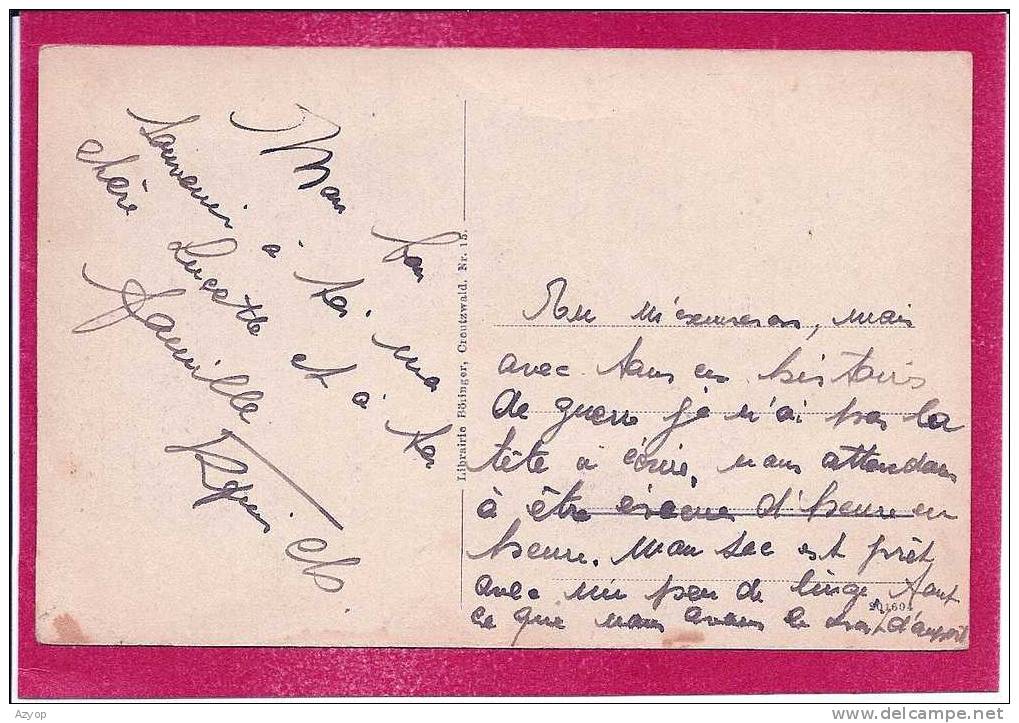 Mon bon
souvenir à toi, ma
chère Lucette et à ta
famille
Librairie Böttinger, Creutzwald. Nr. 15.
Tu m'excuseras, mais
avec tous ces histoires
de guerre je n'ai pas la
tête à écrire, nous attendons
à être évacués d'heure en
heure. Mon sac est prêt
avec un peu de linge, tout
ce que nous avons le droit d'emporter
201604
Azyop
www.delcampe.net